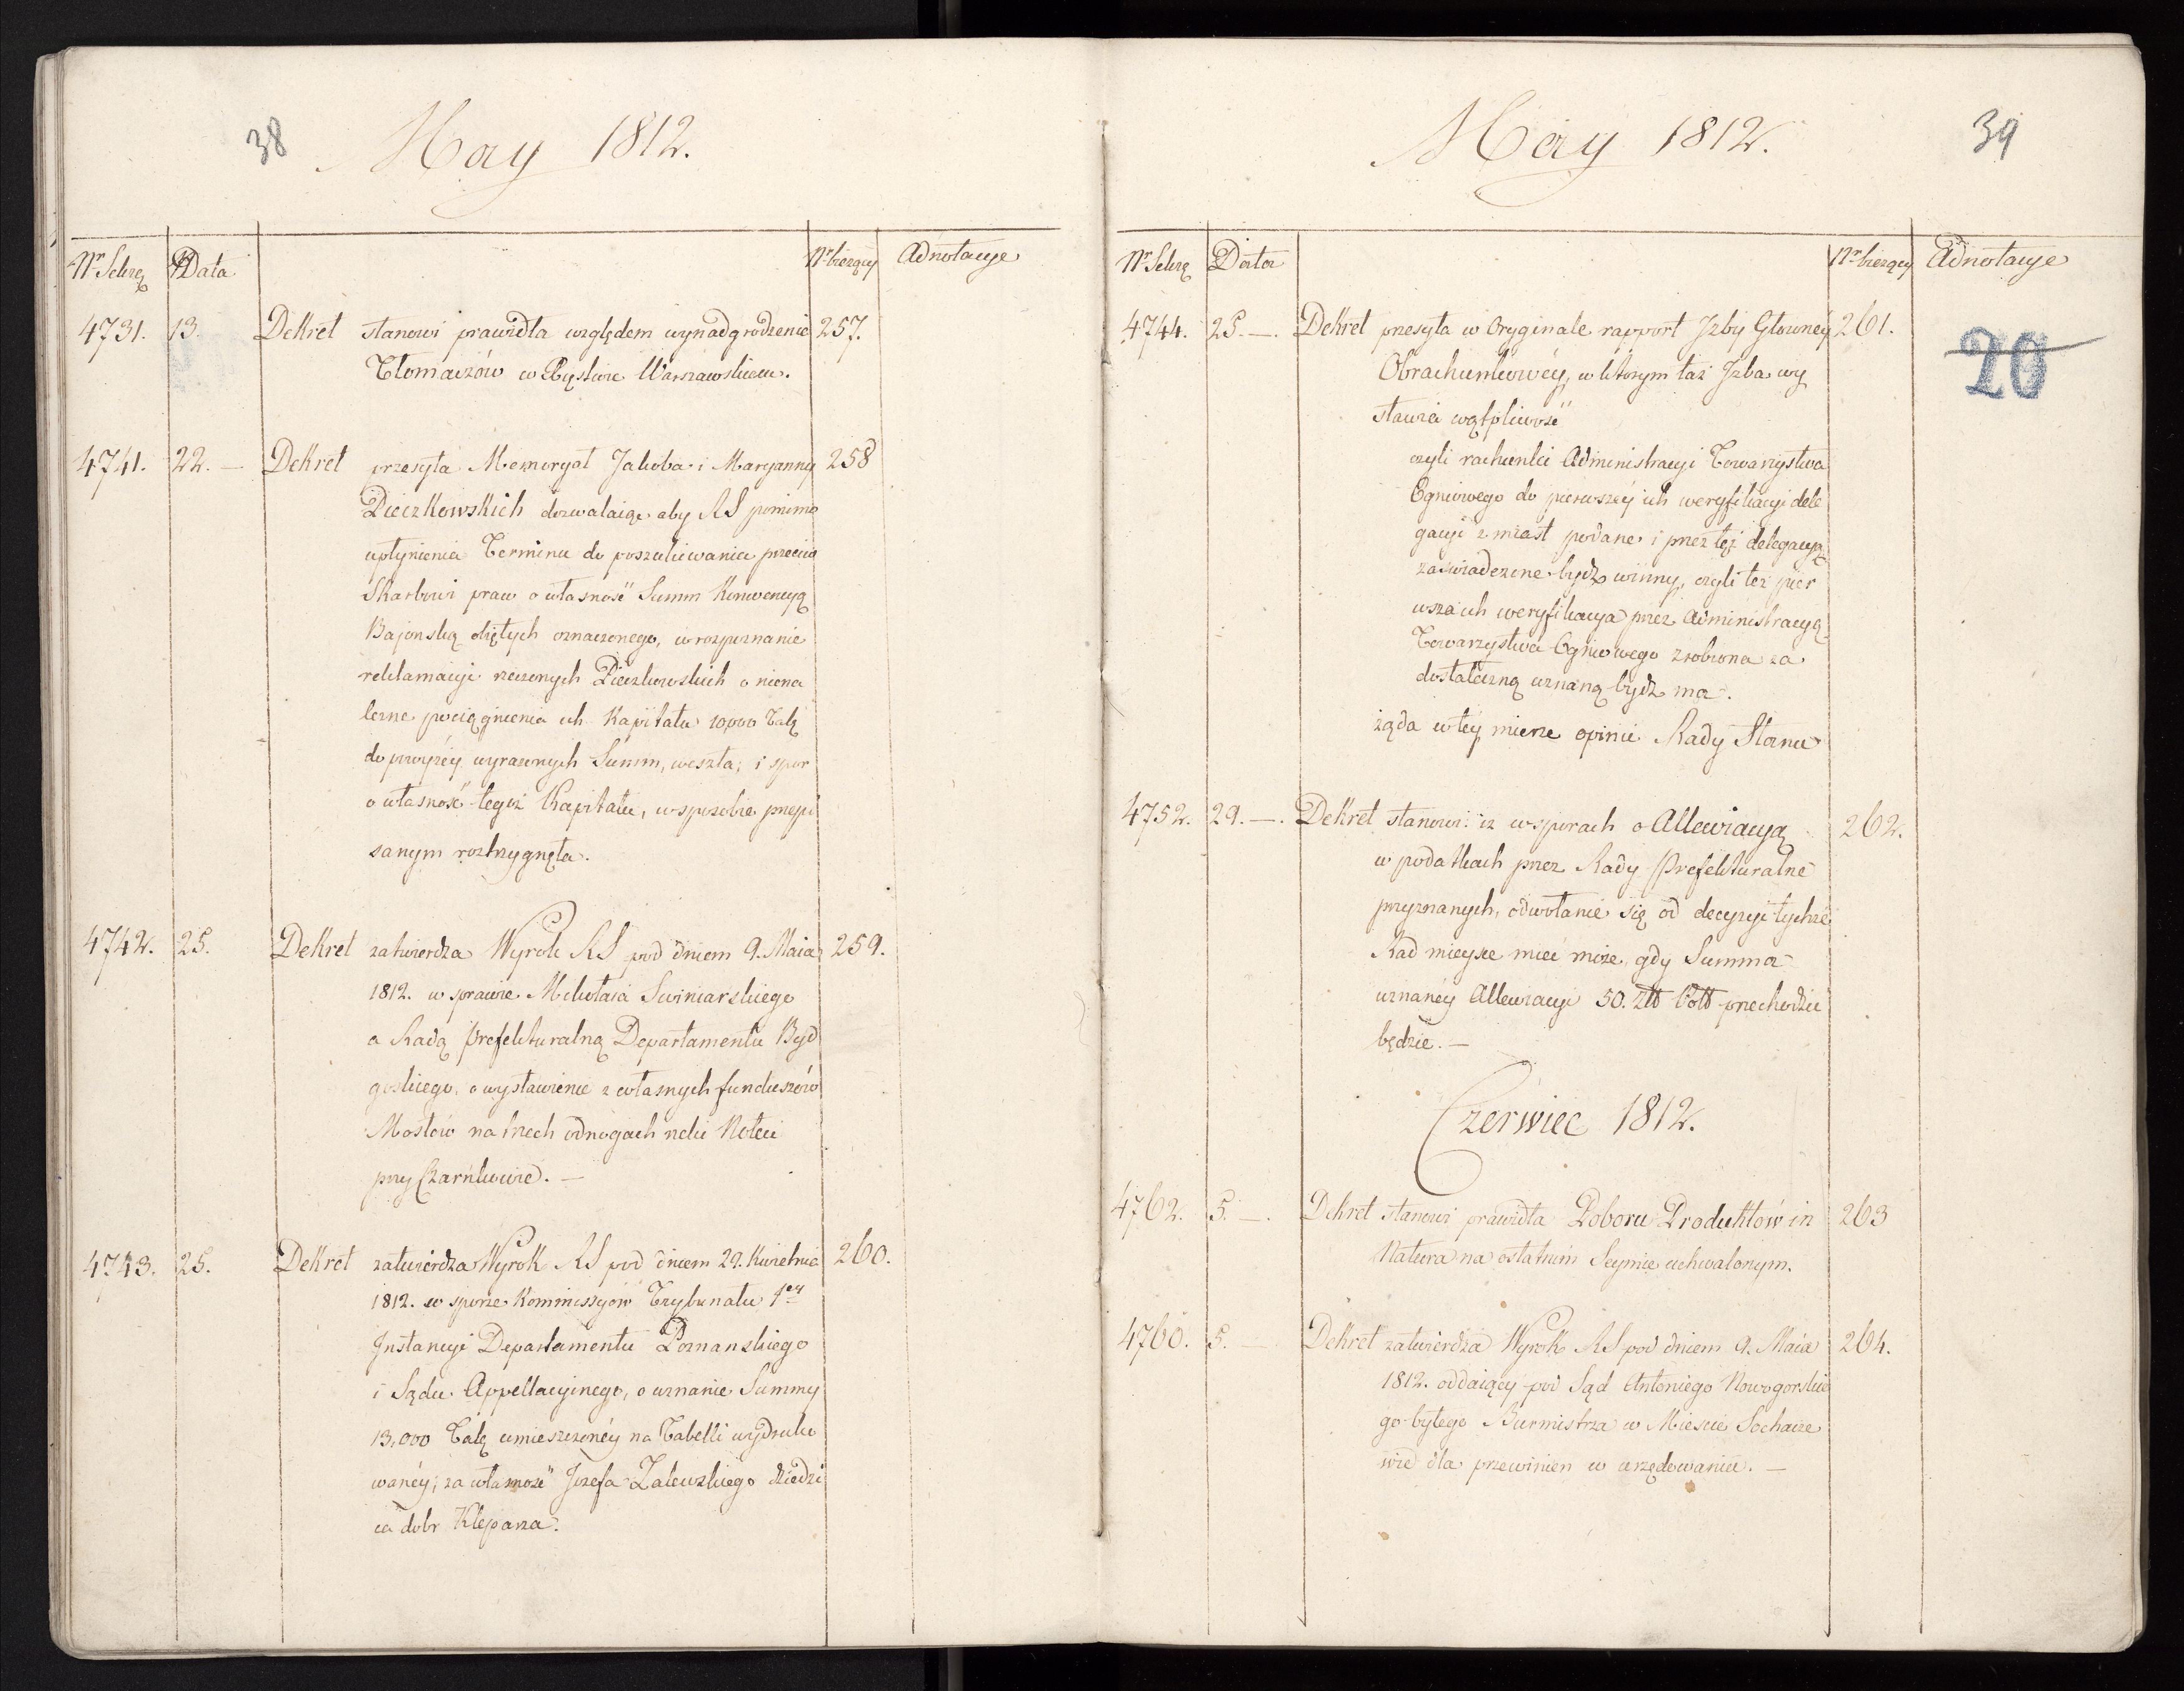 38 May 1812.
Nr Sekre Data Nr bieżący Adnotacye
4731. 13. Dekret stanowi prawidła względem wynadgrodzenie 257.
Tłomaczów w Xięstwie Warszawskiem.
4741. 22. — Dekret przesyła Memoryał Jakoba i Maryanny 258
Pieczkowskich dozwalaiąc aby RS pomimo
upłynienia Terminu do poszukiwania przeciw
Skarbowi praw o własność Summ Konwencyą
Bajonską obiętych oznaczonego, w rozpoznanie
reklamacyi rzeczonych Pieczkowskich o niena
leżne pociągnienia ich Kapitału 10,000 Talę
do powyżéy wyrażonych Summ, weszła; i spor
o własność tegoż Kapitału, w sposobie przepi
sanym roztrzygnęła.
4742. 25. Dekret zatwierdza Wyrok RS pod dniem 9. Maia 259.
1812. w sprawie Mikołaia Swiniarskiego
a Radą Prefekturalną Departamentu Byd
goskiego, o wystawienie z własnych funduszów
Mostów na trzech odnogach rzeki Noteci
przy Czarnkowie. —
4743. 25. Dekret zatwierdza Wyrok RS pod dniem 29. Kwietnia 260.
1812. w sporze Kommissyów Trybunału 1ey
Instancyi Departamentu Poznanskiego
i Sądu Appellacyinego, o uznanie Summy
13,000 Talę umieszczonéy na Tabelli wydruko
wanéy, za własność Jozefa Zalewskiego dziedzi
ca dobr Klepara.
May 1812. 39
Nr Sekrę Data Nr bieżący Adnotacye
4744. 25. —. Dekret przesyła w Oryginale rapport Jzby Głowney 261.
20
Obrachunkowéy, w którym taż Jzba wy
stawia wątpliwość
czyli rachunki Administracyi Towarzystwa
Ogniowego do pierwszéy ich weryfikacyi dele
gacyi z miast podane i przez też delegacyą
zaświadczone bydz winny, czyli też pier
wsza ich weryfikacya przez Administracyą
Towarzystwa Ogniowego zrobiona za
dostateczną uznaną bydz ma.
żąda w tey mierze opinii Rady Stanu
4752. 29. —. Dekret stanowi: iż w sporach o Allewiacyą 262.
w podatkach przez Rady Prefekturalne
przyznanych, odwołanie się od decyzyi tychże
Rad mieysce mieć może, gdy Summa
uznanéy Allewiacyi 50. Złł Poll przechodzić
będzie. —
Czerwiec 1812.
4762. 5. —. Dekret stanowi prawidła Poboru Produktów in 263
Natura na ostatnim Seymie uchwalonym.
4760. 5. — Dekret zatwierdza Wyrok RS pod dniem 9. Maia 264.
1812. oddaiący pod Sąd Antoniego Nowogorskie
go byłego Burmistrza w Mieście Sochacze
wie dla przewinien w urzędowaniu. —